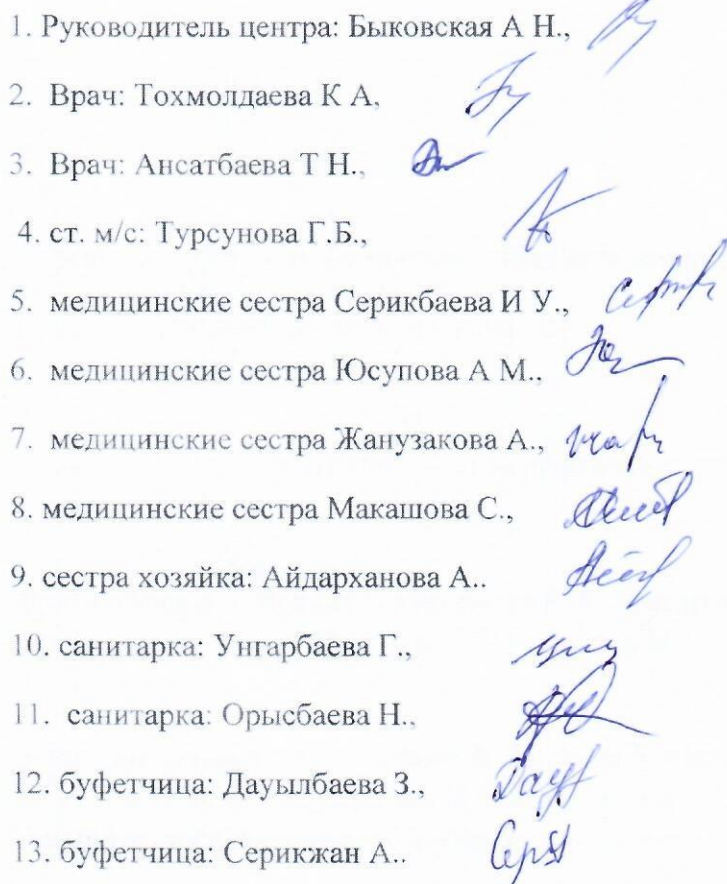 1. Руководитель центра: Быковская А Н.,
2. Врач: Тохмолдаева К А,
3. Врач: Ансатбаева Т Н.,
4. ст. м/с: Турсунова Г.Б.,
5. медицинские сестра Серикбаева И У.,
6. медицинские сестра Юсупова А М..
7. медицинские сестра Жанузакова А.,
8. медицинские сестра Макашова С.,
9. сестра хозяйка: Айдарханова А..
10. санитарка: Унгарбаева Г.,
11. санитарка: Орысбаева Н.,
12. буфетчица: Дауылбаева З.,
13. буфетчица: Серикжан А..